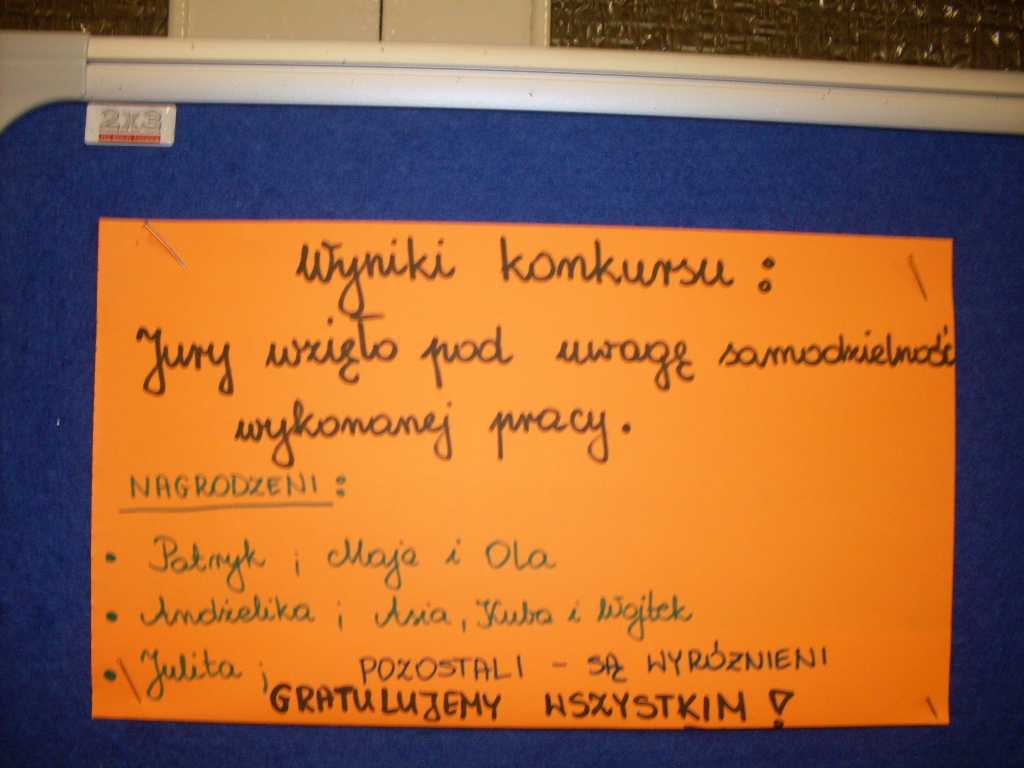 2x3
Wyniki konkursu :
Jury wzięło pod uwagę samodzielność
wykonanej pracy.
NAGRODZENI :
• Patryk ; Maja i Ola
• Andżelika ; Asia, Kuba i Wojtek
• Julita ; POZOSTALI - SĄ WYRÓŻNIENI
GRATULUJEMY WSZYSTKIM !